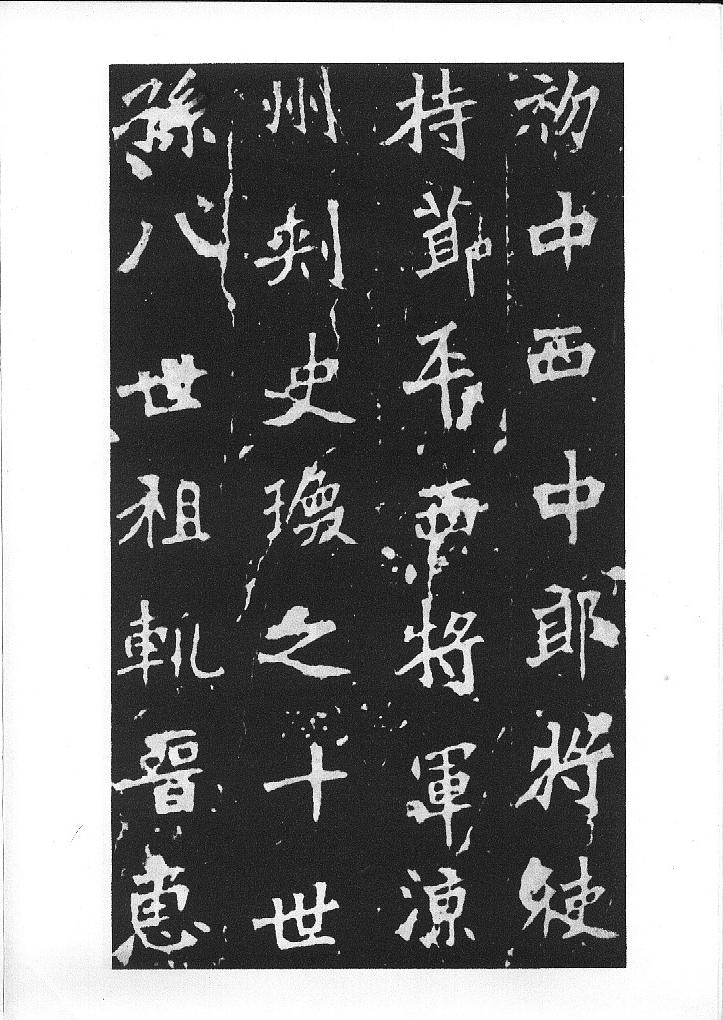 初中西中郎將使
持節平西將軍涼
州刺史瓊之十世
孫八世祖軌晉惠